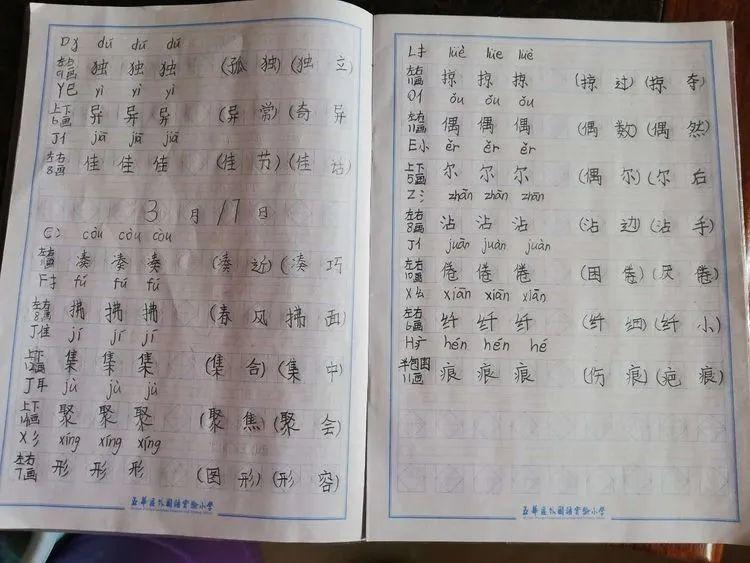 D犭 dú dú dú
左右 9画 独 独 独 (孤 独)(独 立)
Y巳 yì yì yì
上下 6画 异 异 异 (异 常)(奇 异
J亻 jiā jiā jiā
左右 8画 佳 佳 佳 (佳 节)(佳 话)
3 月 17 日
C冫 còu còu còu
左右 凑 凑 凑 (凑 近)(凑 巧
F扌 fú fú fú
左右 8画 拂 拂 拂 (春 风 拂 面)
J隹 jí jí jí
上下 12画 集 集 集 (集 合)(集 中)
J耳 jù jù jù
上下 14画 聚 聚 聚 (聚 焦)(聚 会)
X彡 xíng xíng xíng
左右 7画 形 形 形 (图 形)(形 容)
五华区外国语实验小学
L扌 lüè lüe lüè
左右 11画 掠 掠 掠 (掠 过)(掠 夺)
O亻 ǒu ǒu ǒu
左右 11画 偶 偶 偶 (偶 数)(偶 然)
E小 ěr ěr ěr
上下 5画 尔 尔 尔 (偶 尔)(尔 后
Z氵 zhān zhān zhān
左右 8画 沾 沾 沾 (沾 边)(沾 手)
J亻 juàn juàn juàn
左右 10画 倦 倦 倦 (困 倦)(厌 倦)
X纟 xiān xiān xiān
左右 6画 纤 纤 纤 (纤 细)(纤 小)
H疒 hén hén hé
半包围 11画 痕 痕 痕 (伤 痕)(疤 痕)
五华区外国语实验小学